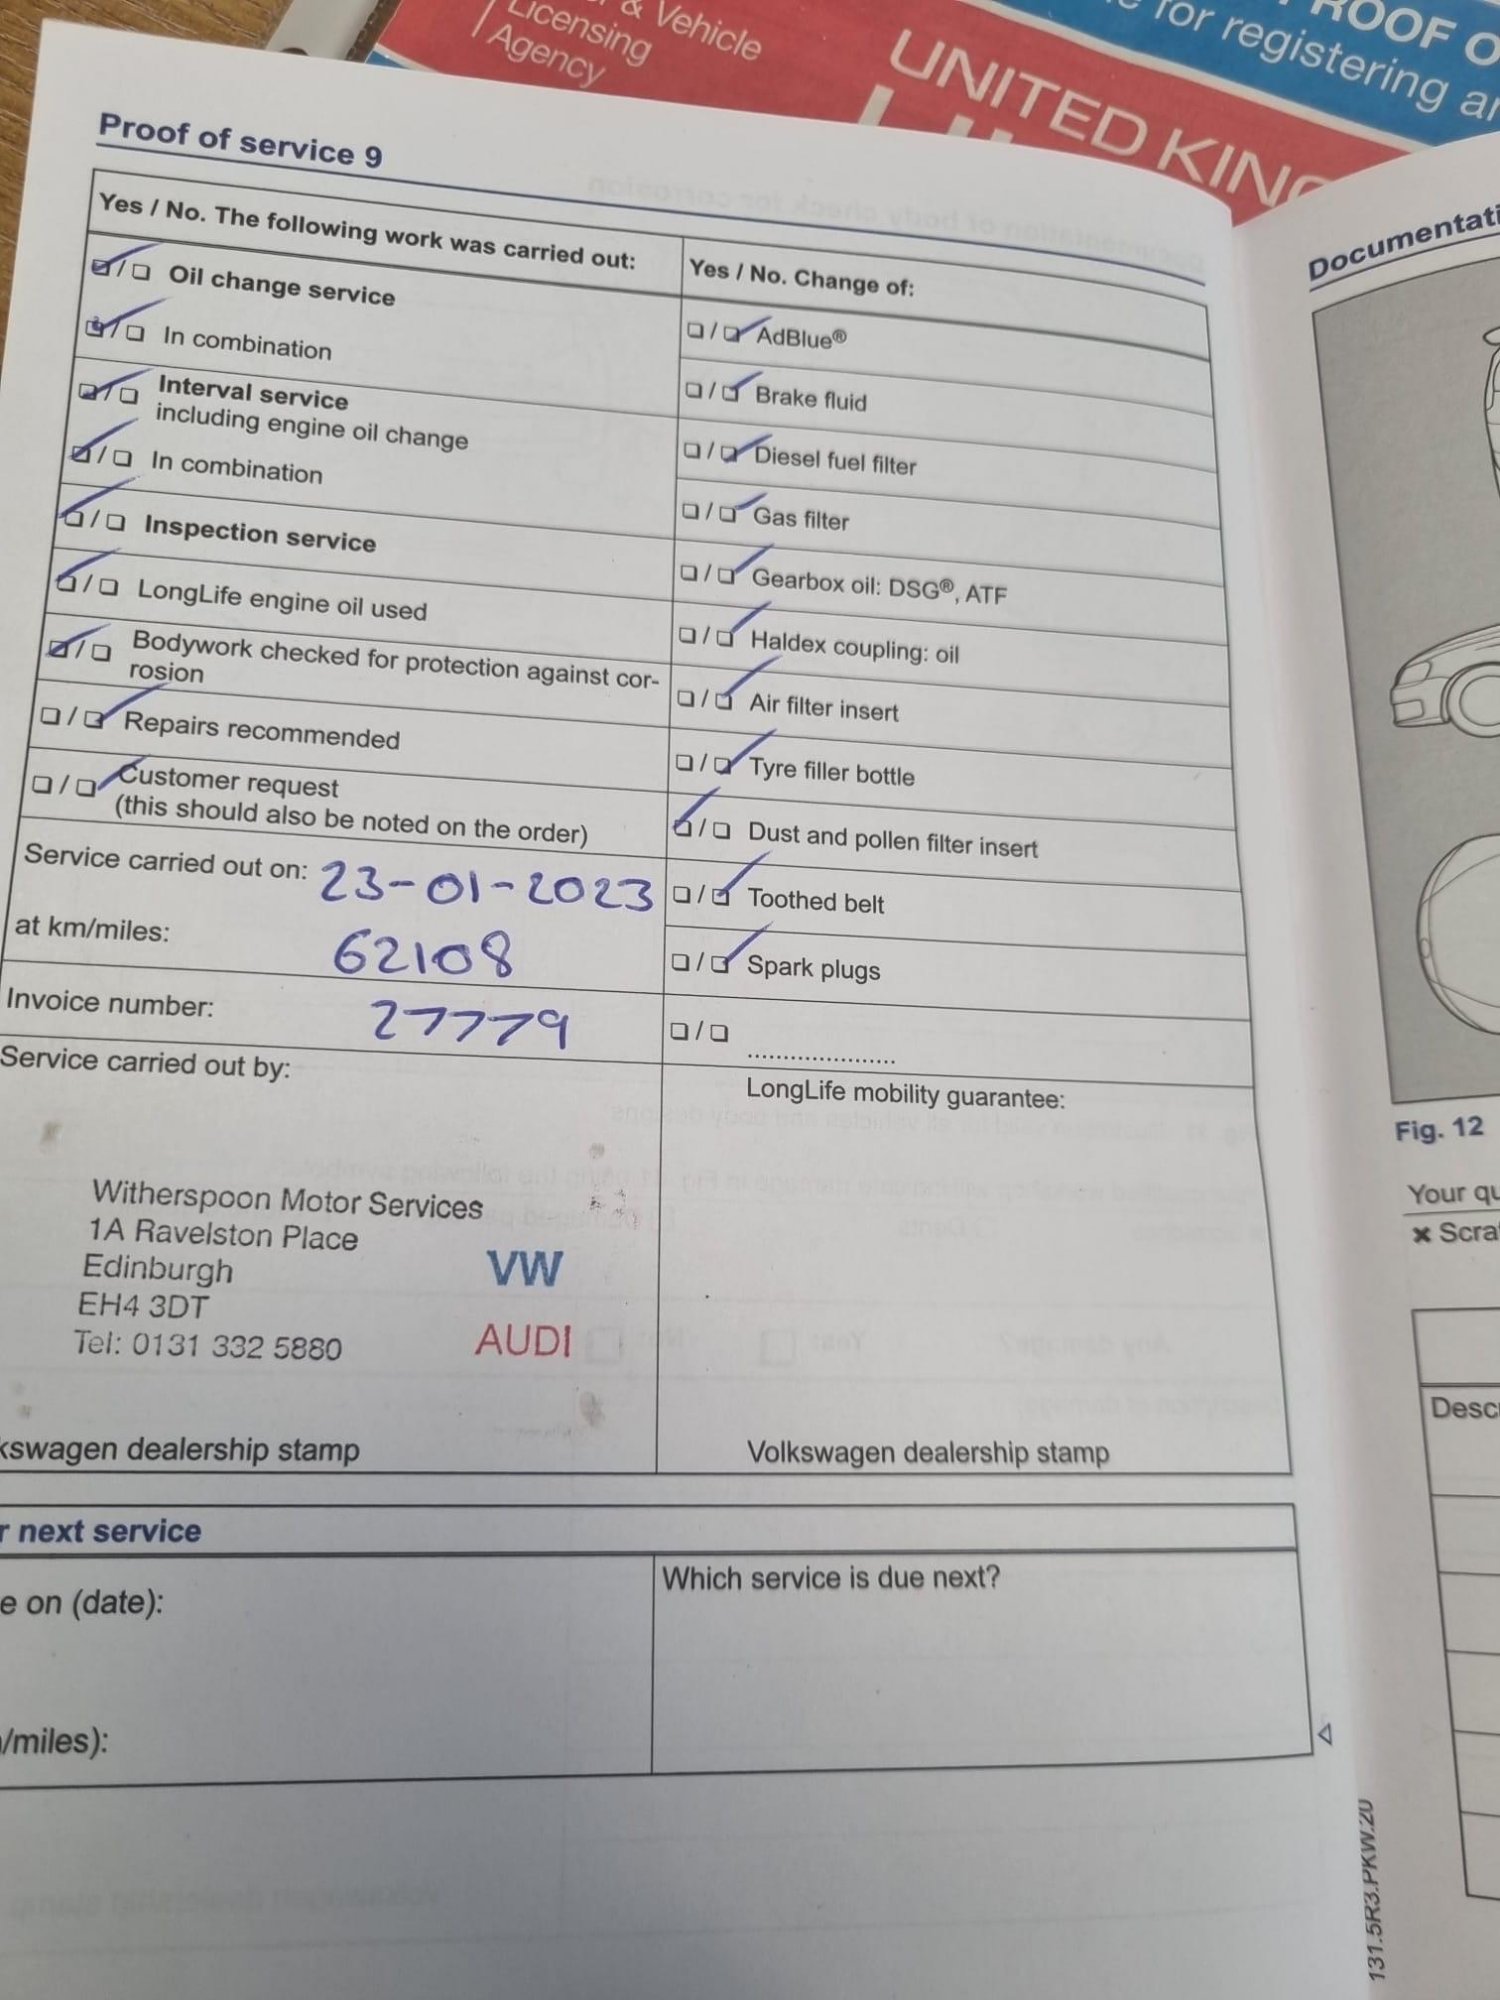 & Vehicle
Licensing
Agency
UNITED KING
ROOF O
for registering
Proof of service 9
Yes / No. The following work was carried out:
☑/❏ Oil change service
☑/❏ In combination
☑/❏ Interval service
including engine oil change
☑/❏ In combination
☑/❏ Inspection service
☑/❏ LongLife engine oil used
☑/❏ Bodywork checked for protection against cor-
rosion
❏/☑ Repairs recommended
❏/☑ Customer request
(this should also be noted on the order)
Service carried out on: 23-01-2023
at km/miles: 62108
Invoice number: 27779
Service carried out by:
Witherspoon Motor Services
1A Ravelston Place
Edinburgh
EH4 3DT
Tel: 0131 332 5880
VW
AUDI
kswagen dealership stamp
Yes / No. Change of:
❏/☑ AdBlue®
❏/☑ Brake fluid
❏/☑ Diesel fuel filter
❏/☑ Gas filter
❏/☑ Gearbox oil: DSG®, ATF
❏/☑ Haldex coupling: oil
❏/☑ Air filter insert
❏/☑ Tyre filler bottle
☑/❏ Dust and pollen filter insert
❏/☑ Toothed belt
❏/☑ Spark plugs
❏/❏ .....................
LongLife mobility guarantee:
Volkswagen dealership stamp
r next service
e on (date):
/miles):
Which service is due next?
131.5R3.PKW.20
Documentati
Fig. 12
Your qu
× Scra
Desc